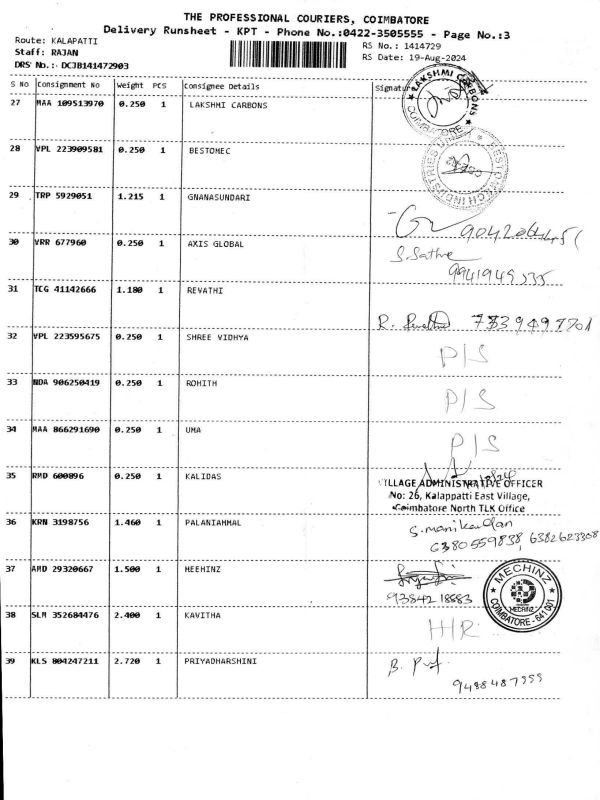 THE PROFESSIONAL COURIERS, COIMBATORE
Delivery Runsheet - KPT - Phone No.:0422-3505555 - Page No.:3
Route: KALAPATTI RS No.: 1414729
Staff: RAJAN RS Date: 19-Aug-2024
DRS No.: DCJB141472903
S No Consignment No Weight PCS Consignee Details Signature
27 MAA 109513970 0.250 1 LAKSHMI CARBONS
LAKSHMI CARBONS COIMBATORE
28 VPL 223909581 0.250 1 BESTOMEC
29 TRP 5929051 1.215 1 GNANASUNDARI
30 VRR 677960 0.250 1 AXIS GLOBAL S. Sathe
31 TCG 41142666 1.180 1 REVATHI
R. Revathi
32 VPL 223595675 0.250 1 SHREE VIDHYA P/S
33 NDA 906250419 0.250 1 ROHITH P/S
34 MAA 866291690 0.250 1 UMA P/S
35 RMD 600896 0.250 1 KALIDAS VILLAGE ADMINISTRATIVE OFFICER
No: 26, Kalappatti East Village,
Coimbatore North TLK Office
36 KRN 3198756 1.460 1 PALANIAMMAL S. manikandan
6380559838, 6382623308
37 AMD 29320667 1.500 1 MEEHINZ
93842 18583
MECHINZ MECHINZ COIMBATORE - 641 001
38 SLM 352684476 2.400 1 KAVITHA H/R
39 KLS 804247211 2.720 1 PRIYADHARSHINI